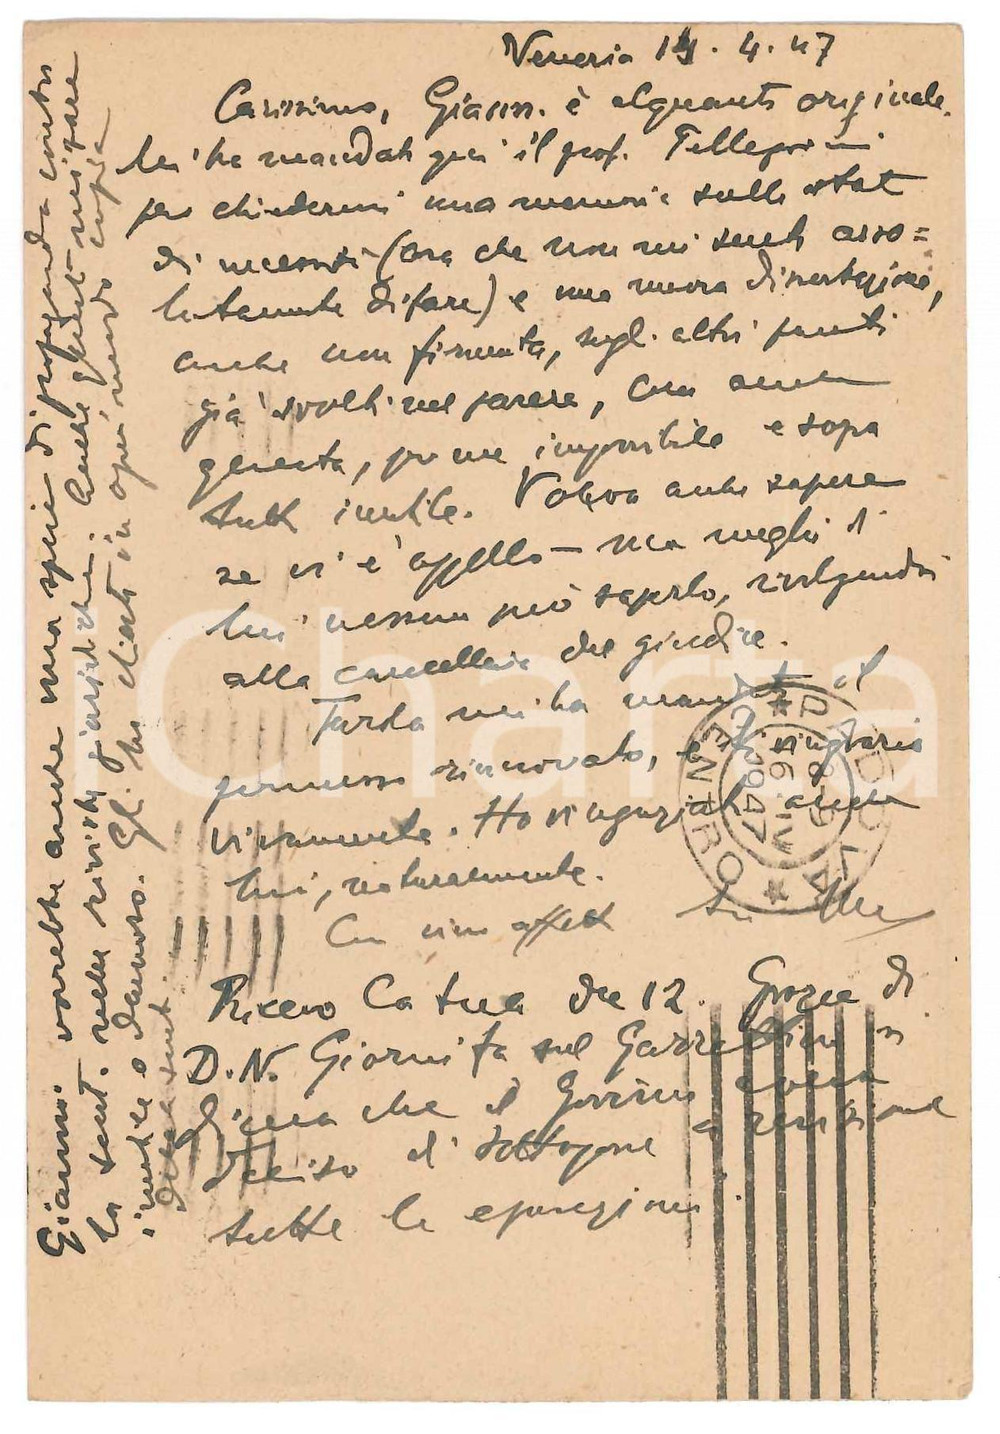 Venezia 14. 4. 47
Carissimo, Giann. è alquanto originale.
Lei ha mandato qui il prof. Pellegrini
per chiedermi una memoria sullo stato
di necessità (ora che non mi sento asso=
lutamente di fare) e una nuova dissertazione,
anche non firmata, sugli altri punti
già svolti nel parere, cosa
questa, per me impossibile e sopra
tutto inutile. Voleva anche sapere
se vi è appello — ma meglio di
lui nessuno può saperlo, rivolgendosi
alla cancelleria del giudice.
Tarda mi ha mandato il
permesso rinnovato, e ti ringrazio
vivamente. Ho ringraziato anche
lui, naturalmente.
Con vivo affetto tuo
Ricevo la tua del 12. Grazie di
D.N. Giorni fa sul Gazzettino si
diceva che il Governo aveva
deciso di sottoporre a revisione
tutte le epurazioni.
Giann. vorrebbe anche una specie di propaganda contro
la sent. nelle riviste giuridiche. Anche questo mi pare
inutile e dannoso. Gli ho chiesto in ogni modo copia
della sent.
PADOVA
CENTRO
16.IV
1947
Charta